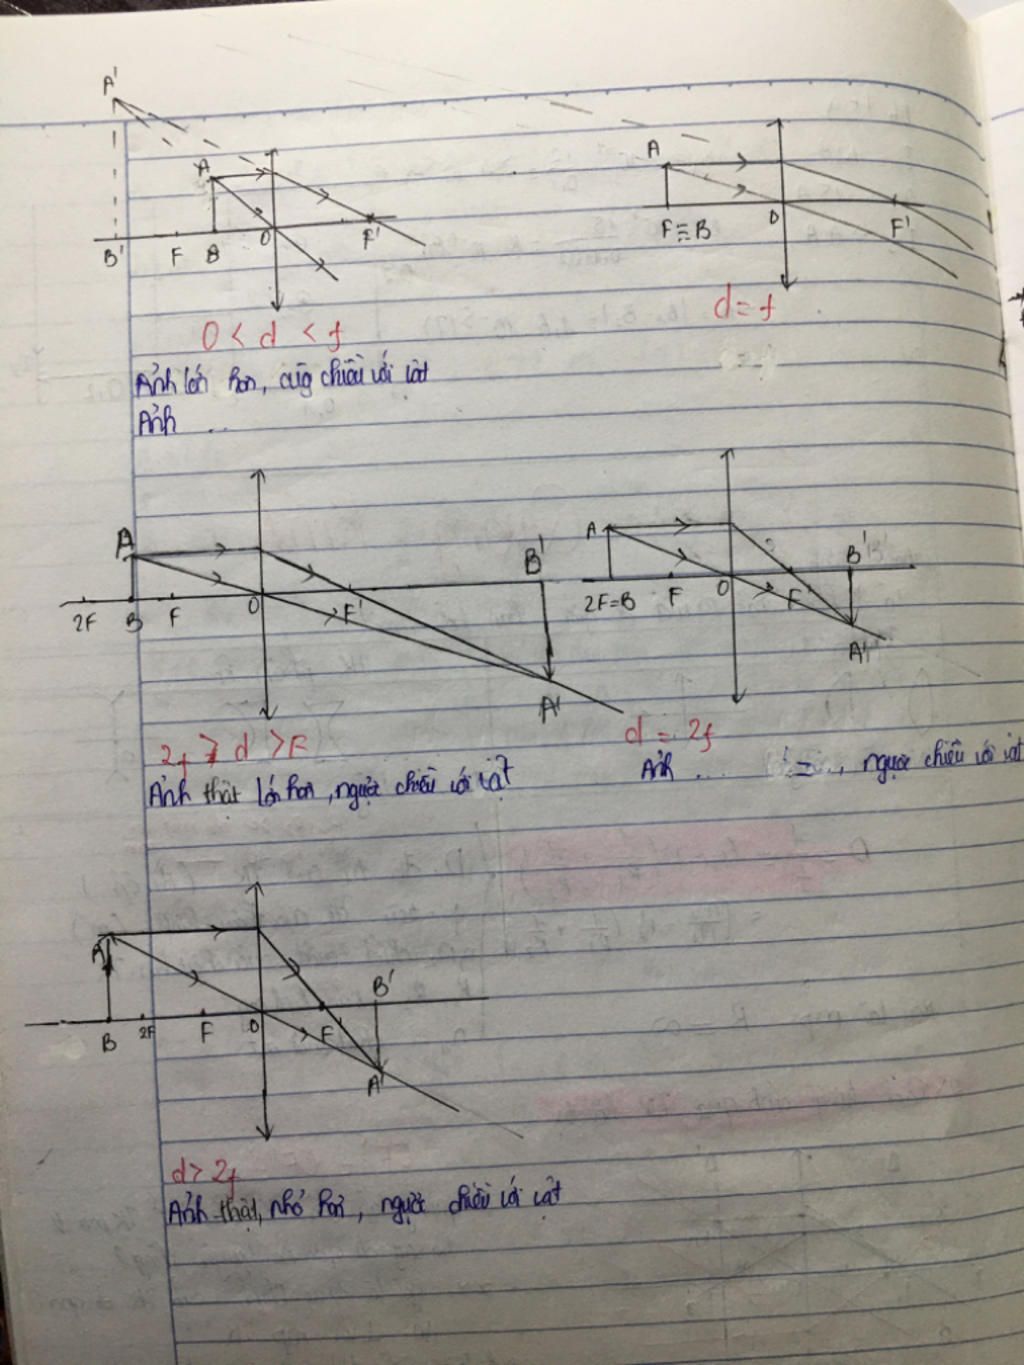 A'
A
B' F B O F'
0 < d < f
Ảnh lớn hơn, cùg chiều với vật
Ảnh ..
A
F≡B O F'
d = f
A B'
2F B F O F'
A'
2f > d > F
Ảnh thật lớn hơn, ngược chiều với vật
A B'
2F=B F O F'
A'
d = 2f
Ảnh .... = ..., ngược chiều với vật
A B'
B 2F F O F'
A'
d > 2f
Ảnh thật, nhỏ hơn, ngược chiều với vật